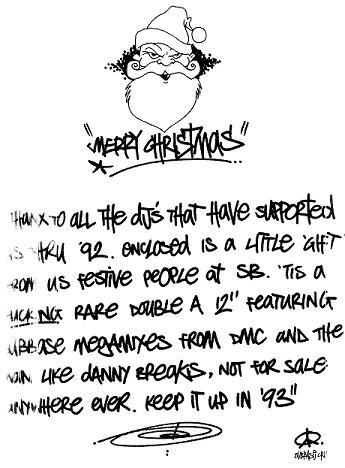 "MERRY CHRISTMAS"
THANX TO ALL THE DJ'S THAT HAVE SUPPORTED
US THRU '92. ENCLOSED IS A LITTLE 'GIFT'
FROM US FESTIVE PEOPLE AT S.B. 'TIS A
FUCKING RARE DOUBLE A 12" FEATURING
SUBBASE MEGAMIXES FROM DMC AND THE
LIKE DANNY BREAKS, NOT FOR SALE
ANYWHERE EVER. KEEP IT UP IN '93"